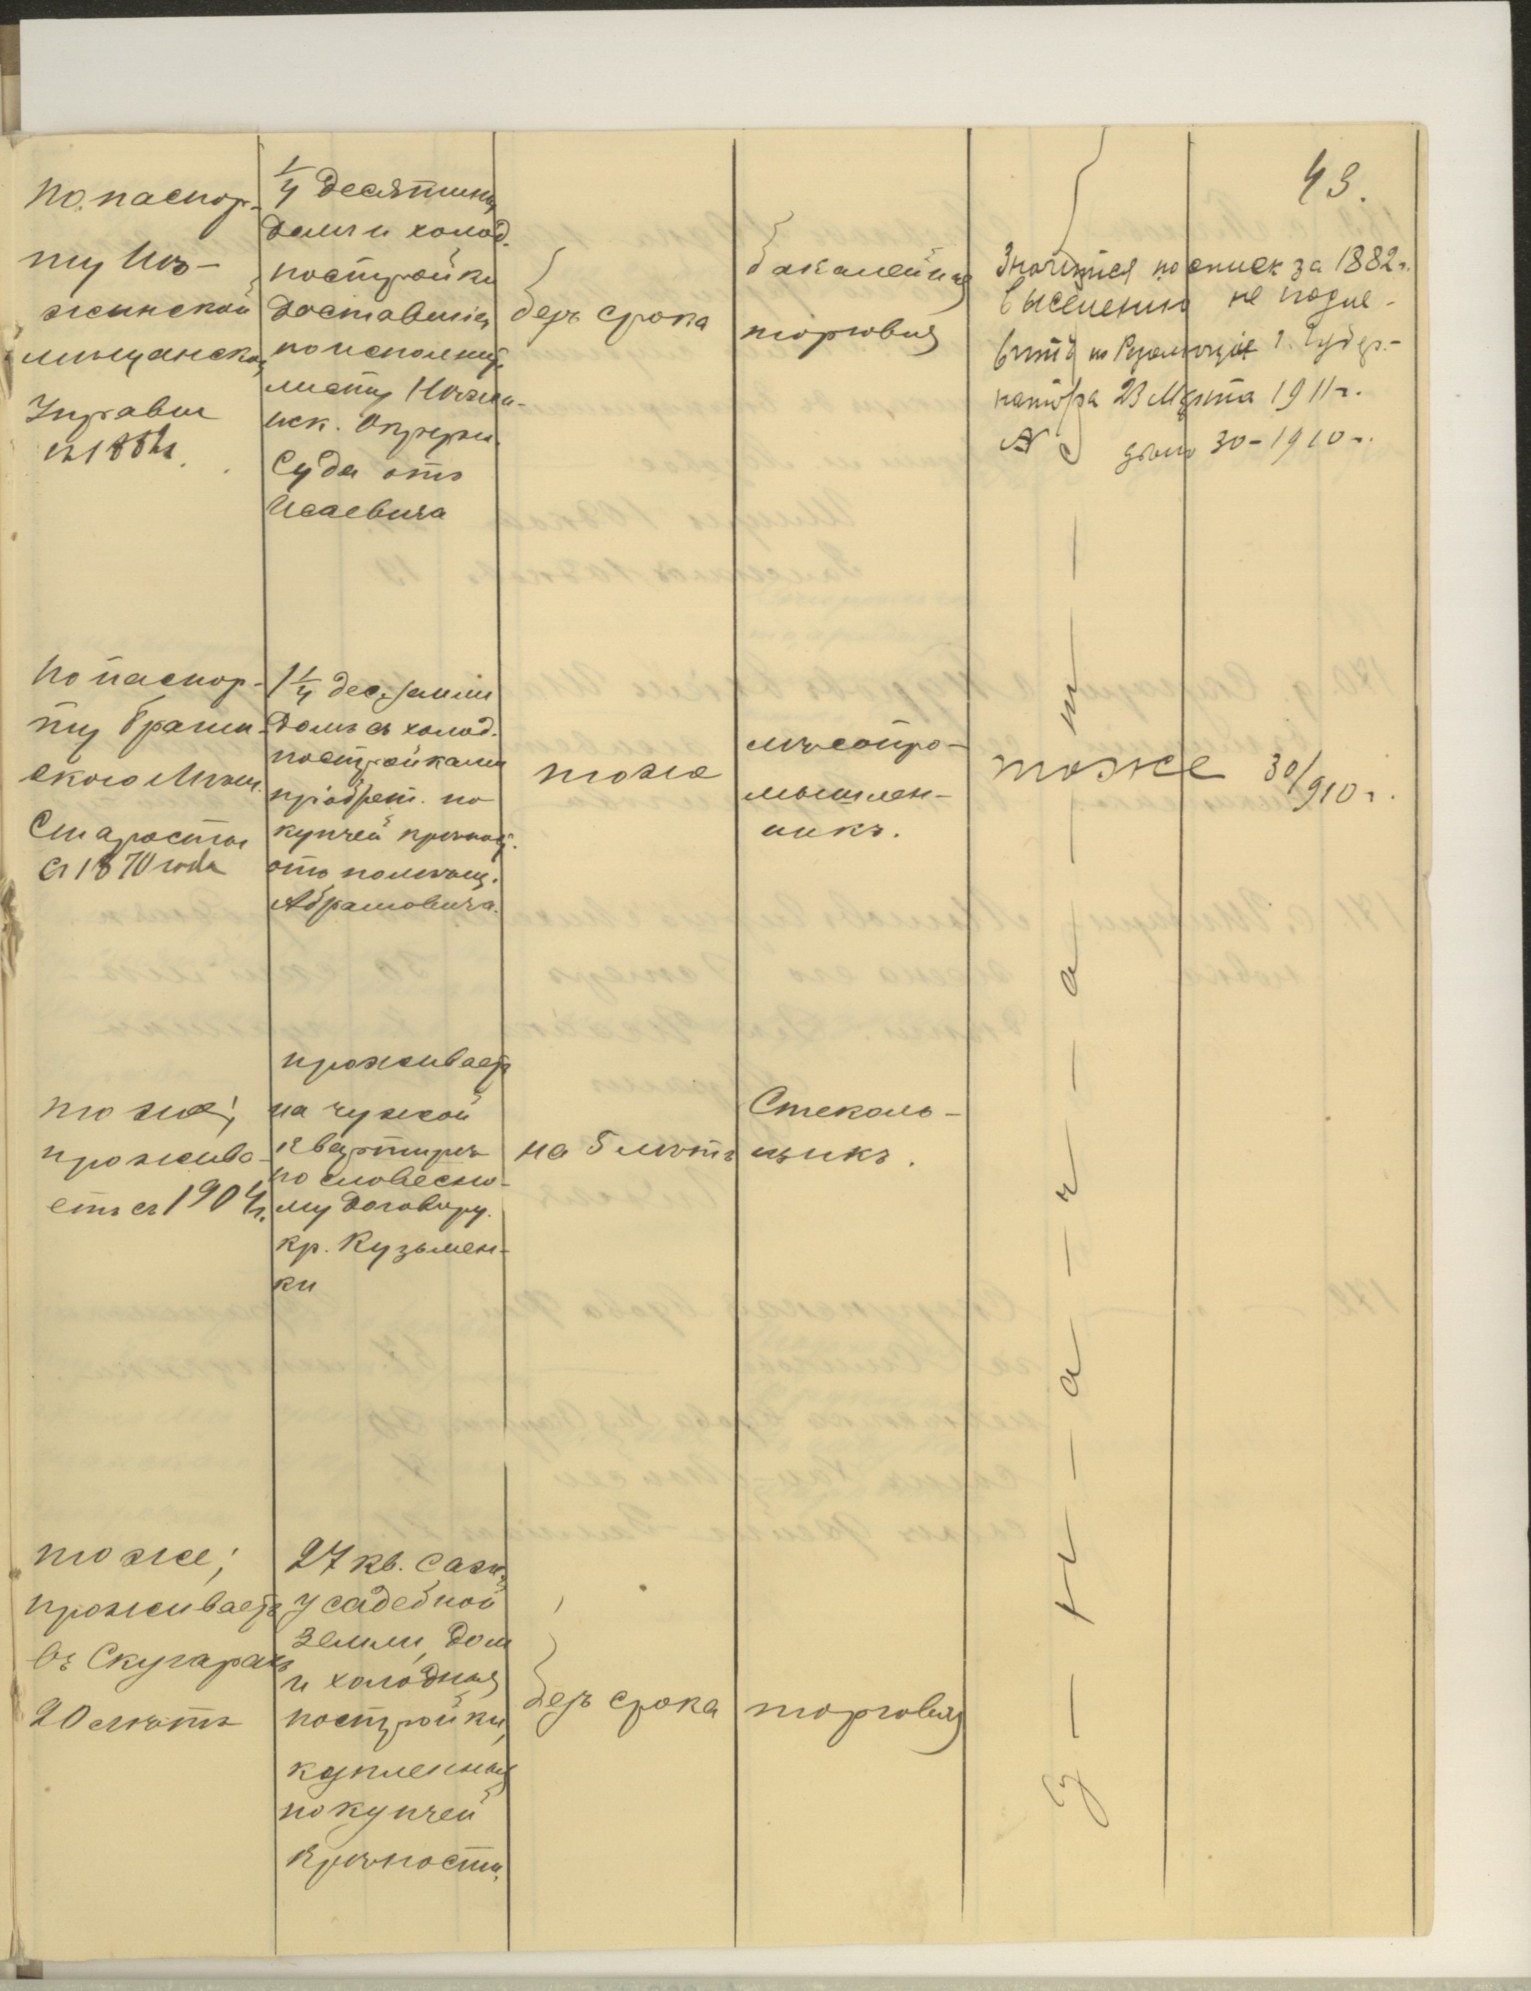 43.
По паспор-
ту Нѣ-
жинской
мѣщанской
Управы
съ 188
1/4 десятины
домъ и холод.
постройки
доставшіяся
по исполнит.
листу Нѣжи-
нск. Окружн.
Суда отъ
Исаевича
безъ срока
бакалейная
торговля
Значится по списк за 1882 г.
выселенію не подле-
житъ по Резолюціи г. Губер-
натора 23 Марта 1911 г.
№ дѣло 30-1910 г.
По паспор-
ту
скаго Мѣщ.
Старосты
съ 1870 года
1 1/4 дес. земли
домъ съ холод.
постройками
пріобрет. по
купчей крѣпост.
отъ помѣщ.
Абрамовича.
тоже
мясопро-
мышлен-
никъ.
тоже 30/910 г.
тоже;
прожива-
етъ съ 1904 г.
проживаетъ
на чужой
квартирѣ
по словесно-
му договору.
кр. Кузьмен-
ки
на 5 лѣтъ
Стеколь-
щикъ.
тоже;
проживаетъ
въ Скугарахъ
20 лѣтъ
27 кв. саж.
усадебной
земли, дом
и холодныя
постройки,
купленныя
по купчей
крѣпости.
безъ срока
торговля